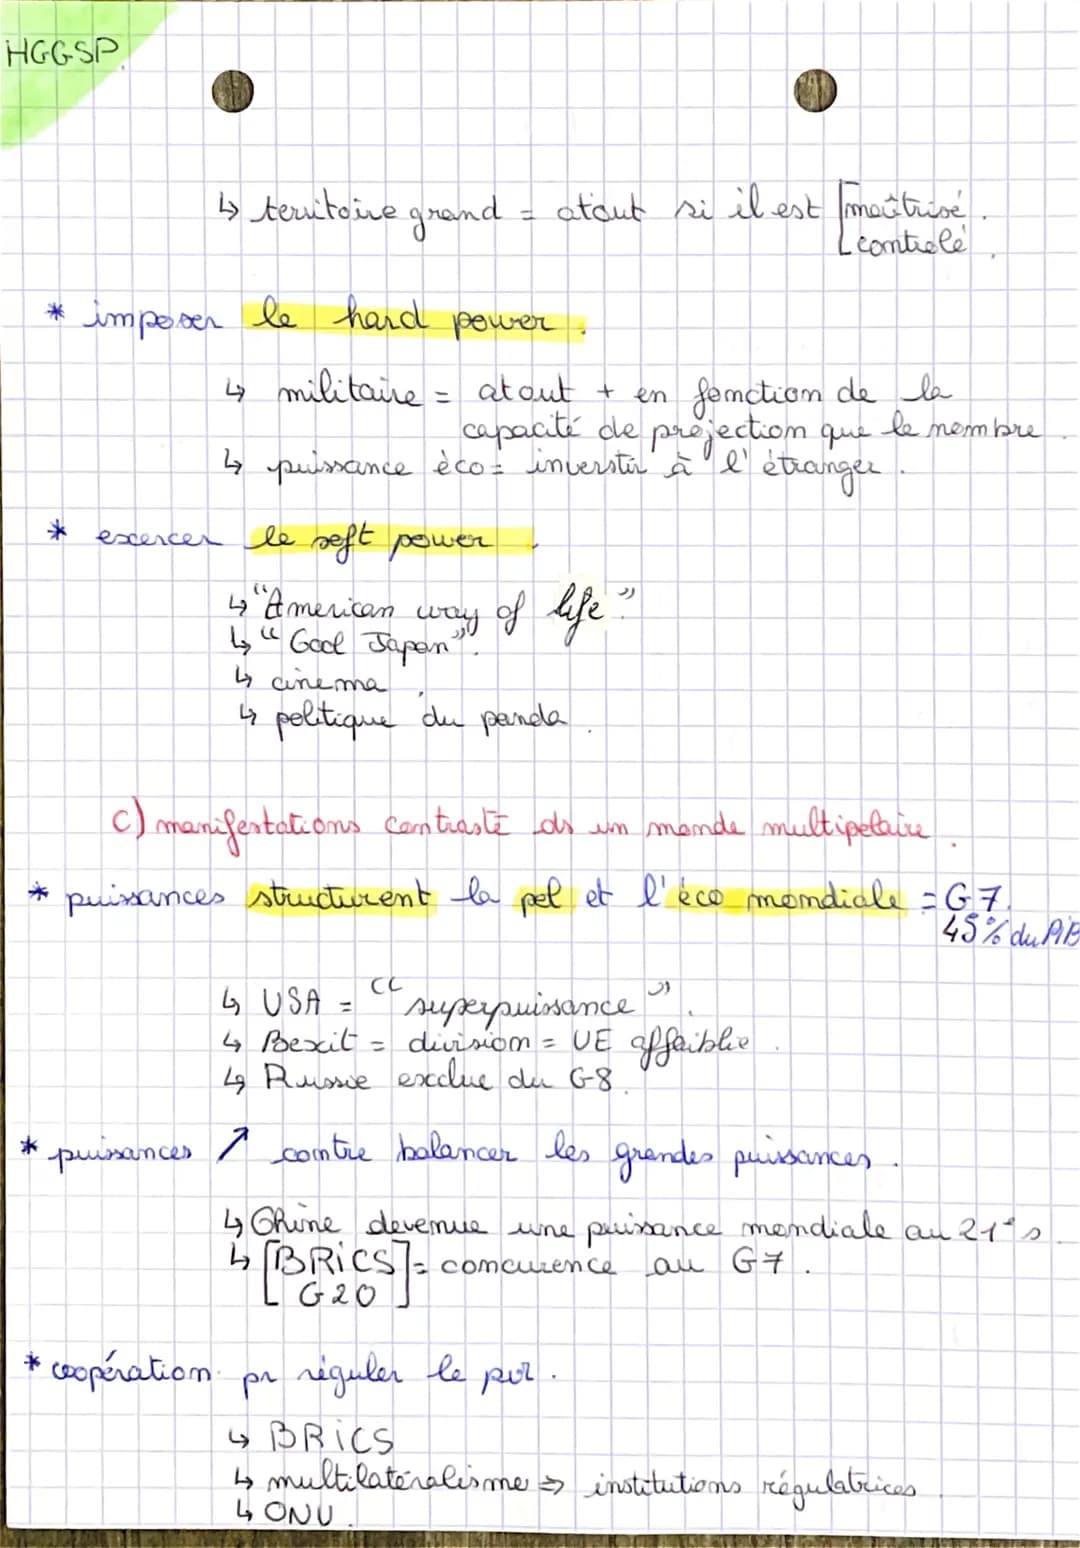 HGGSP
↳ territoire grand = atout si il est [maîtrisé.
contrôlé.
* imposer le hard power.
↳ militaire = atout + en fonction de la
capacité de projection que le nombre.
↳ puissance éco = inverstir à l'étranger.
* excercer le soft power.
↳ "American way of life".
↳ "Cool Japan".
↳ cinema.
↳ politique du panda.
C) manifestations contrasté ds un monde multipolaire.
* puissances structurent la pol et l'éco mondiale = G7.
45% du PiB
↳ USA = "superpuissance".
↳ Bexit = division = UE affaiblie.
↳ Russie exclue du G8.
* puissances ↗ contre balancer les grandes puissances.
↳ Chine devenue une puissance mondiale au 21e s.
↳ [BRiCS] = concurence au G7.
G20
* coopération pr réguler le
↳ BRiCS
↳ multilatéralisme => institutions régulatrices.
↳ ONU.